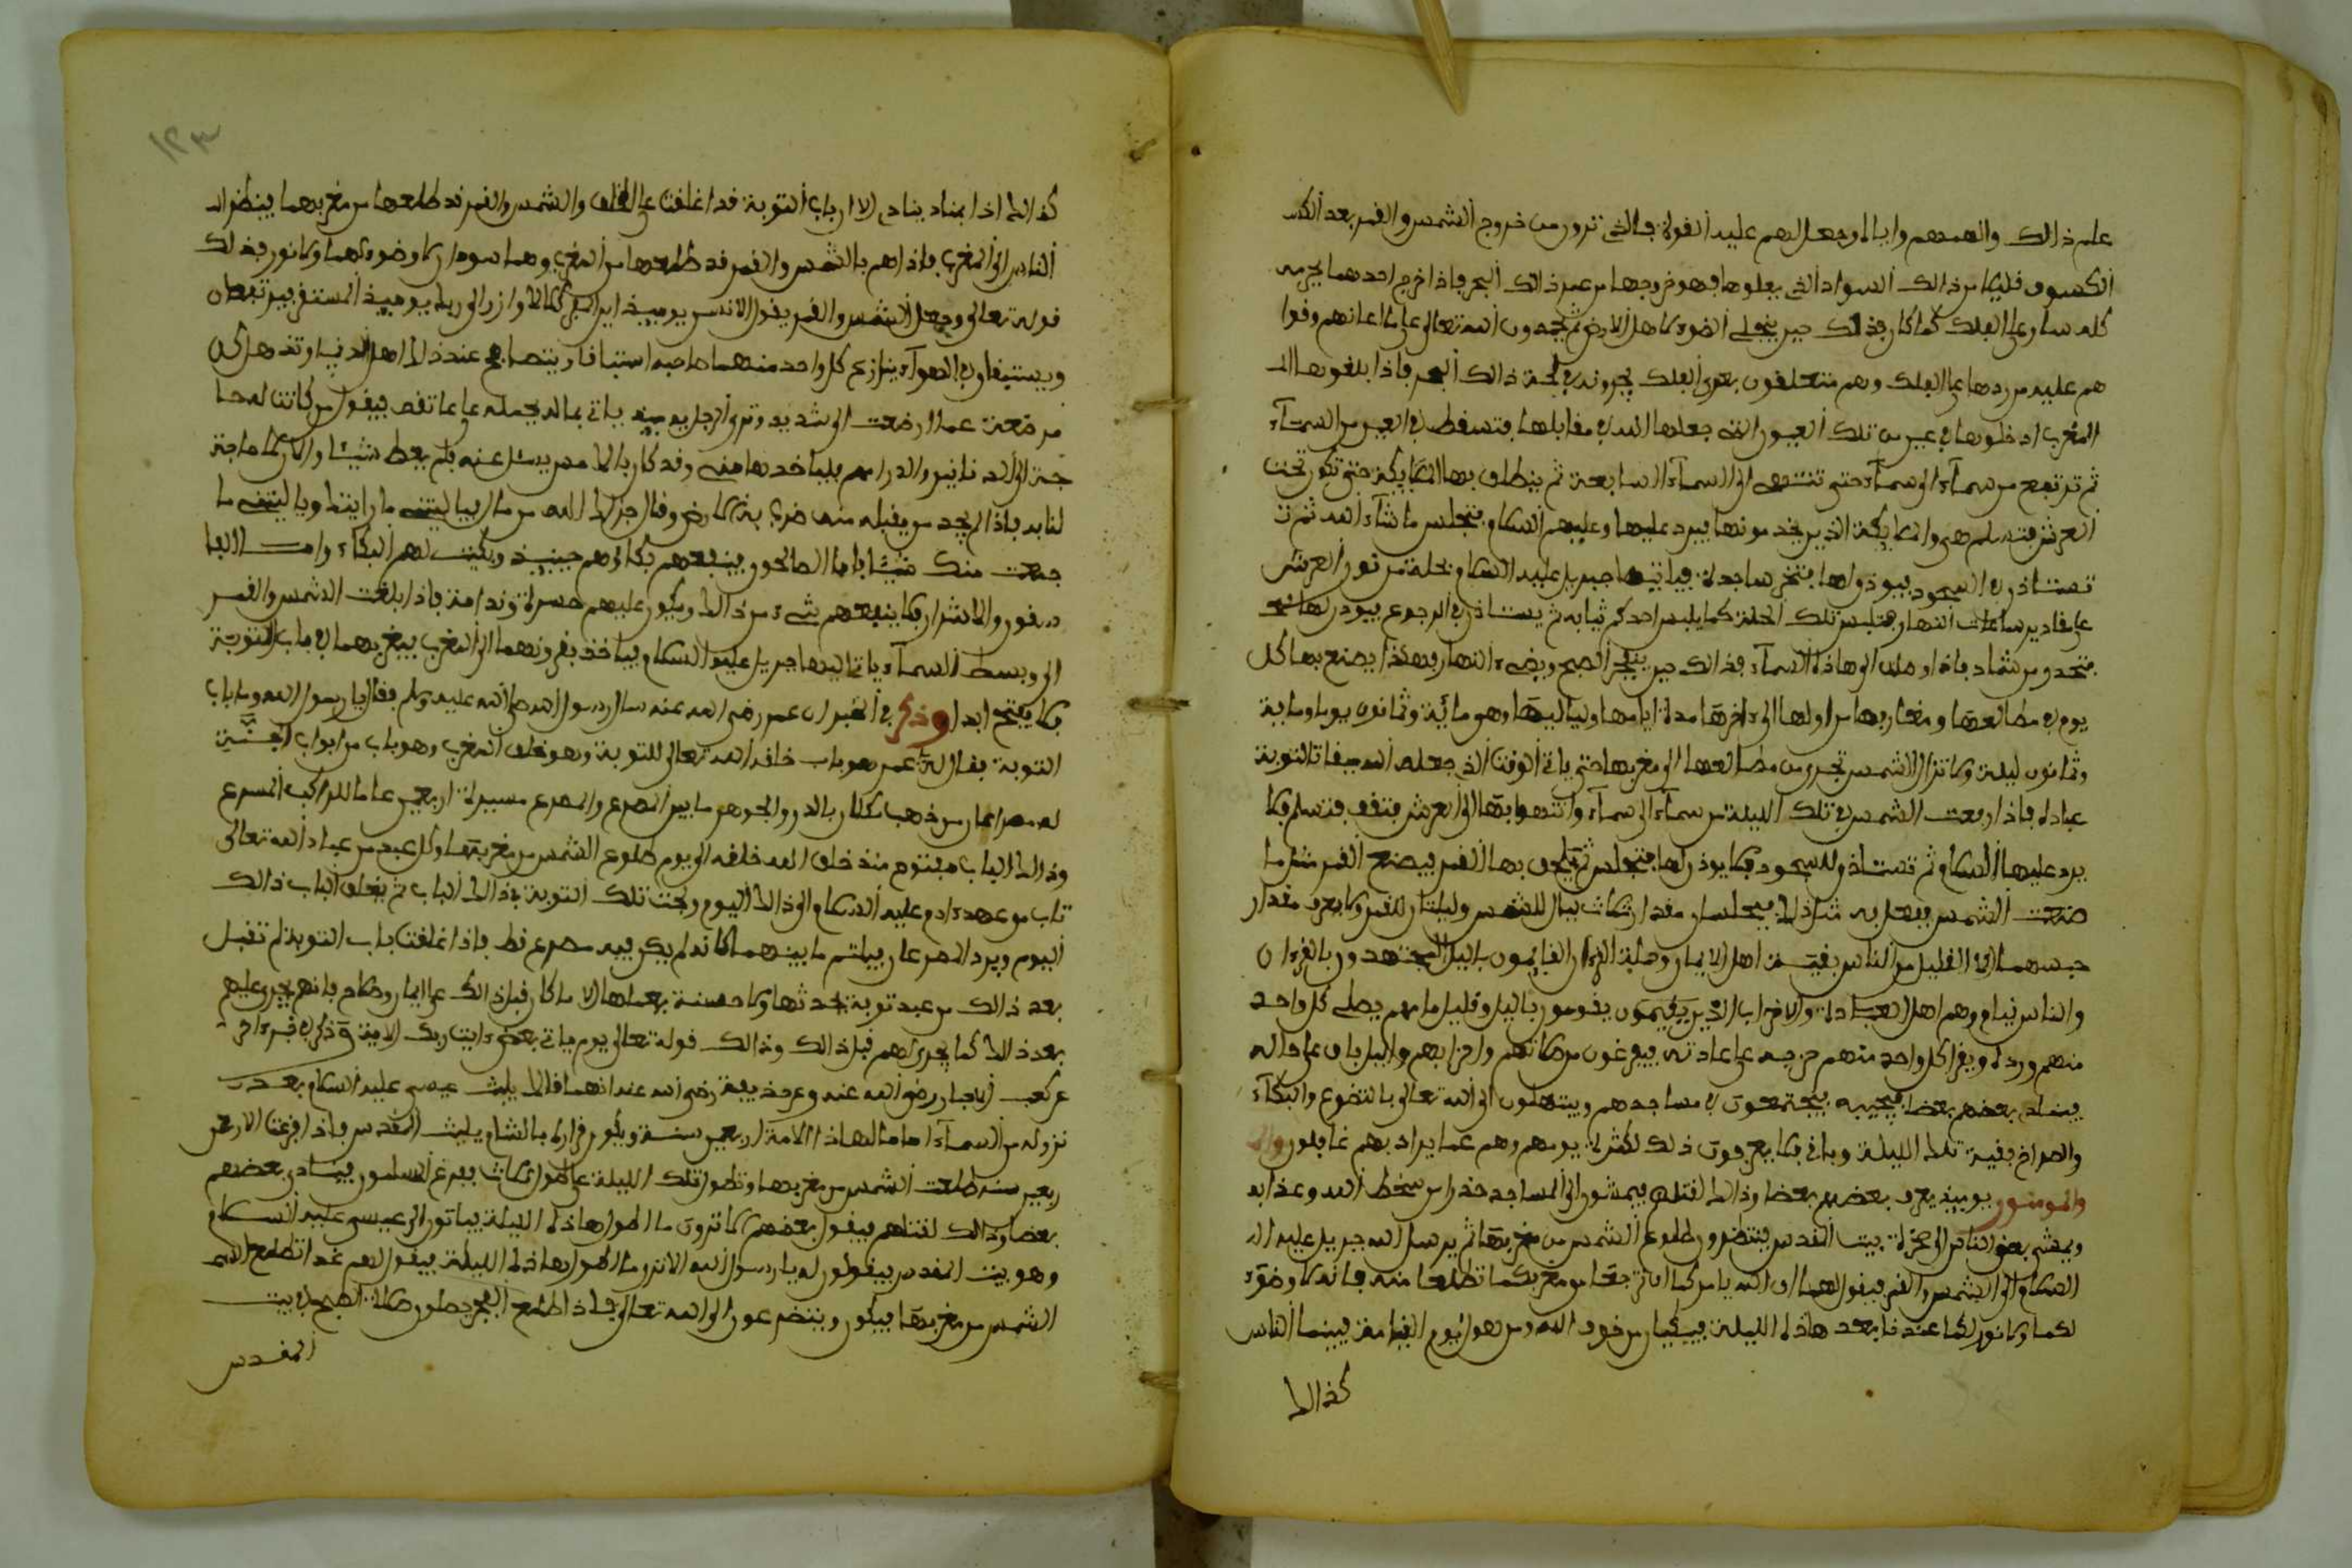 علم ذالك والهمهم وايالا وجعل لهم عليه القولة فالشي ترون من خروج الشمس والقمر بعد الكسـ
الكسوف قليلا من ذالك السواد الذي يعلوها فهو خروجها من عمر ذالك البحر فاذا اخرج احدهما
كله ساوي الفلك كما كان وذلك حين ينجلي الضوء كا هل الارض ثم يحمدون الله تعالى على ما اعانهم وفوا
هم عليه من ردها على الفلك وهم متعلقون بعرى الفلك يجرونه في لجة ذالك البحر فاذا بلغوها الـ
المغرب ادخلوها في عين من تلك العيون التي جعلها الله في مقابلها فتسقط في العين من السماء
ثم ترتفع من سماء الى سماء حتى تنتهي الى السماء السابعة ثم ينطلق بها الملايكة حتى تكون تحت
العرش فتسلم هي والملايكة الذين يخدمونها فيرد عليها وعليهم السلام فتجلس ما شاء الله ثم
تستاذن في السجود فيوذن لها فتخر ساجدة فياتيها جبريل عليه السلام بحلة من نور العرش
على مقادير ساعات النهار فتلبس تلك الحلة كما يلبس احدكم ثيابه ثم يستاذن في الرجوع فيوذن لها
فتحدو من شماد فاذا وصلت الى هاذه السماء فذالك حين ينفجر الصبح ويضيء النهار فهكذا يصنع بها كل
يوم في مطالعها ومغاربها من اولها الى اخرها مدة ايامها ولياليها وهو مائة وثمانون يوما ومائة
وثمانون ليلة ولا تزال الشمس تجري من مطالعها الى مغربها حتى ياتي الوقت الذي جعله الله ميقات التوبة
عباده فاذا رفعت الشمس في تلك الليلة من سماء الى سماء وانتهوا بها الى العرش فتقف فتسلم فلا
يرد عليها السلام ثم تستاذن للسجود فلا يوذن لها فتجلس ثم يلحق بها القمر فيصنع القمر مثل ما
صنعت الشمس فيفعل به مثل ذلك فيجلسان مقدار ثلاث ليال للشمس وليلتان للقمر ولا يعرف مقدار
حبسهما الا القليل من الناس بقية من اهل الايمان وحملة القرءان القائمون بالليل المجتهدون بالقرءان
والناس نيام وهم اهل العبادة والاحزاب الذين يقيمون يقومون بالليل وقليل ما هم يصلي كل واحد
منهم ورده ويقرا كل واحد منهم حزبه على عادته فيفرغون من صلاتهم واحزابهم والليل باق على حاله
فينادي بعضهم بعضا فيجيبه فيجتمعون في مساجدهم ويبتهلون الى الله تعالى بالتضرع والبكاء
والصراخ بقية تلك الليلة وباقي فلا يعرفون ذلك لكثرة يومهم وهم عما يراد بهم غافلون وان
والمومنون يومئذ يعرف بعضهم بعضا وذالك لقتلهم فيمشون الى المساجد حذرا من سخط الله وعذابه
ويمشي بعض الناس الى صخرة بيت المقدس ينتظرون طلوع الشمس من مغربها ثم يرسل الله جبريل عليه الـ
السلام الى الشمس والقمر فيقول لهما ان الله يامركما ان ترجعا من مغربكما تطلعا منه فانه لا ضوء
لكما ولا نور لكما عندنا بعد هاذه الليلة فيبكيان من خوف الله ومن هول يوم القيامة فبينما الناس
كذالك
١٢٣
كذالك اذا بمناد ينادي الا ان باب التوبة قد اغلقت على الخلق والشمس والقمر قد طلعها من مغربهما فينظر
الناس الى المغرب فاذا هم بالشمس والقمر قد طلعها من المغرب وهما سودان لا ضوء لهما ولا نور فذلك
قوله تعالى وجمع الشمس والقمر يقول الانسن يوميذ اين المفر كلا لا وزر الى ربك يوميذ المستقر فيرتفعان
ويستبقان في الهواء ينازع كل واحد منهما صاحبه استباقا ويتصايح عند ذالك اهل الدنيا وتذهل كل
مرضعة عما ارضعت الى شديد وترى الرجل يوميذ ياتي بماله يحمله على عاتقه فيقول من كانت له حا
جة الى الدنانير والدراهم فلياخذها مني وقد كان بالامس يسئل عنه فلم يعط شيئا والان لا حاجة
لنا به فاذا لم يجد من يقبله منه ضرب به الارض وقال جزاك الله من مال يا ليتني ما رايتك ويا ليتني ما
جمعت منك شيئا فاما الصالحون فينفعهم بكاوهم حينيذ ويكتب لهم البكاء واما الفا
سقون والاشرار فلا ينفعهم شيء من ذالك ويكون عليهم حسرة وندامة فاذا بلغت الشمس والقمر
الى وسط السماء ياتي اليها جبريل عليه السلام فياخذ بقرونهما الى المغرب فيغربهما في باب التوبة
فلا يفتح ابدا وذكر في الخبر ان عمر رضي الله عنه سال رسول الله صلى الله عليه وسلم فقال يا رسول الله وما باب
التوبة فقال له يا عمر هو باب خلقه الله تعالى للتوبة وهو خلف المغرب وهو باب من ابواب الجنة
له مصراعان من ذهب مكللان بالدر والجوهر ما بين المصرع والمصرع مسيرة اربعين عاما للراكب المسرع
وذالك الباب مفتوح منذ خلق الله خلقه الى يوم طلوع الشمس من مغربها وكل عبد من عباد الله تعالى
تاب من عهد ءادم عليه السلام الى ذالك اليوم ولجت تلك التوبة في ذالك الباب ثم يغلق الباب ذالك
اليوم ويرد المصرعان فيلتيم ما بينهما كانه لم يكن فيه مصرع قط فاذا غلقت باب التوبة لم تقبل
بعد ذالك من عبد توبة يحدثها ولا حسنة يعملها الا ما كان قبل ذالك على ايمان وصلاح فانهم يجري عليهم
بعد ذالك كما يجري لهم قبل ذالك وذالك قوله تعالى يوم ياتي بعض ءايت ربك الاية وذكر في خبر ءاخر
عن كعب الاحبار رضي الله عنه وعن حذيفة رضي الله عنه انهما قالا يلبث عيسى عليه السلام بعد
نزوله من السماء اماما لهاذه الامة اربعين سنة ويكون قراره بالشام ببيت المقدس فاذا فرغت الار
ربعين سنة طلعت الشمس من مغربها وتطول تلك الليلة على طول ثلاث فيفزع المسلمون فينادي بعضهم
بعضا وذالك لقتلهم فيقول بعضهم الا ترون ما اطول هاذه الليلة فياتون الى عيسى عليه السلام
وهو ببيت المقدس فيقولون له يا رسول الله الا ترى ما اطول هاذه الليلة فيقول لهم غدا تطلع
الشمس من مغربها فيبكون ويتضرعون الى الله تعالى فاذا طلع الفجر يصلون صلاة الصبح في بيت
المقدس